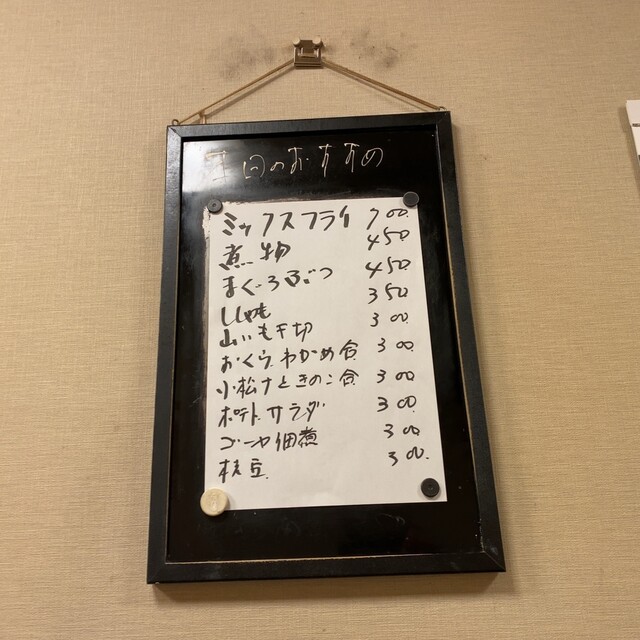 のおすすめ
ミックスフライ 700.
煮物 450.
まぐろぶつ 450.
ししゃも 350.
山いも千切 300.
おくら.わかめ合 300.
小松ナときのこ合 300.
ポテトサラダ 300.
ゴーヤ佃煮 300.
枝豆 300.